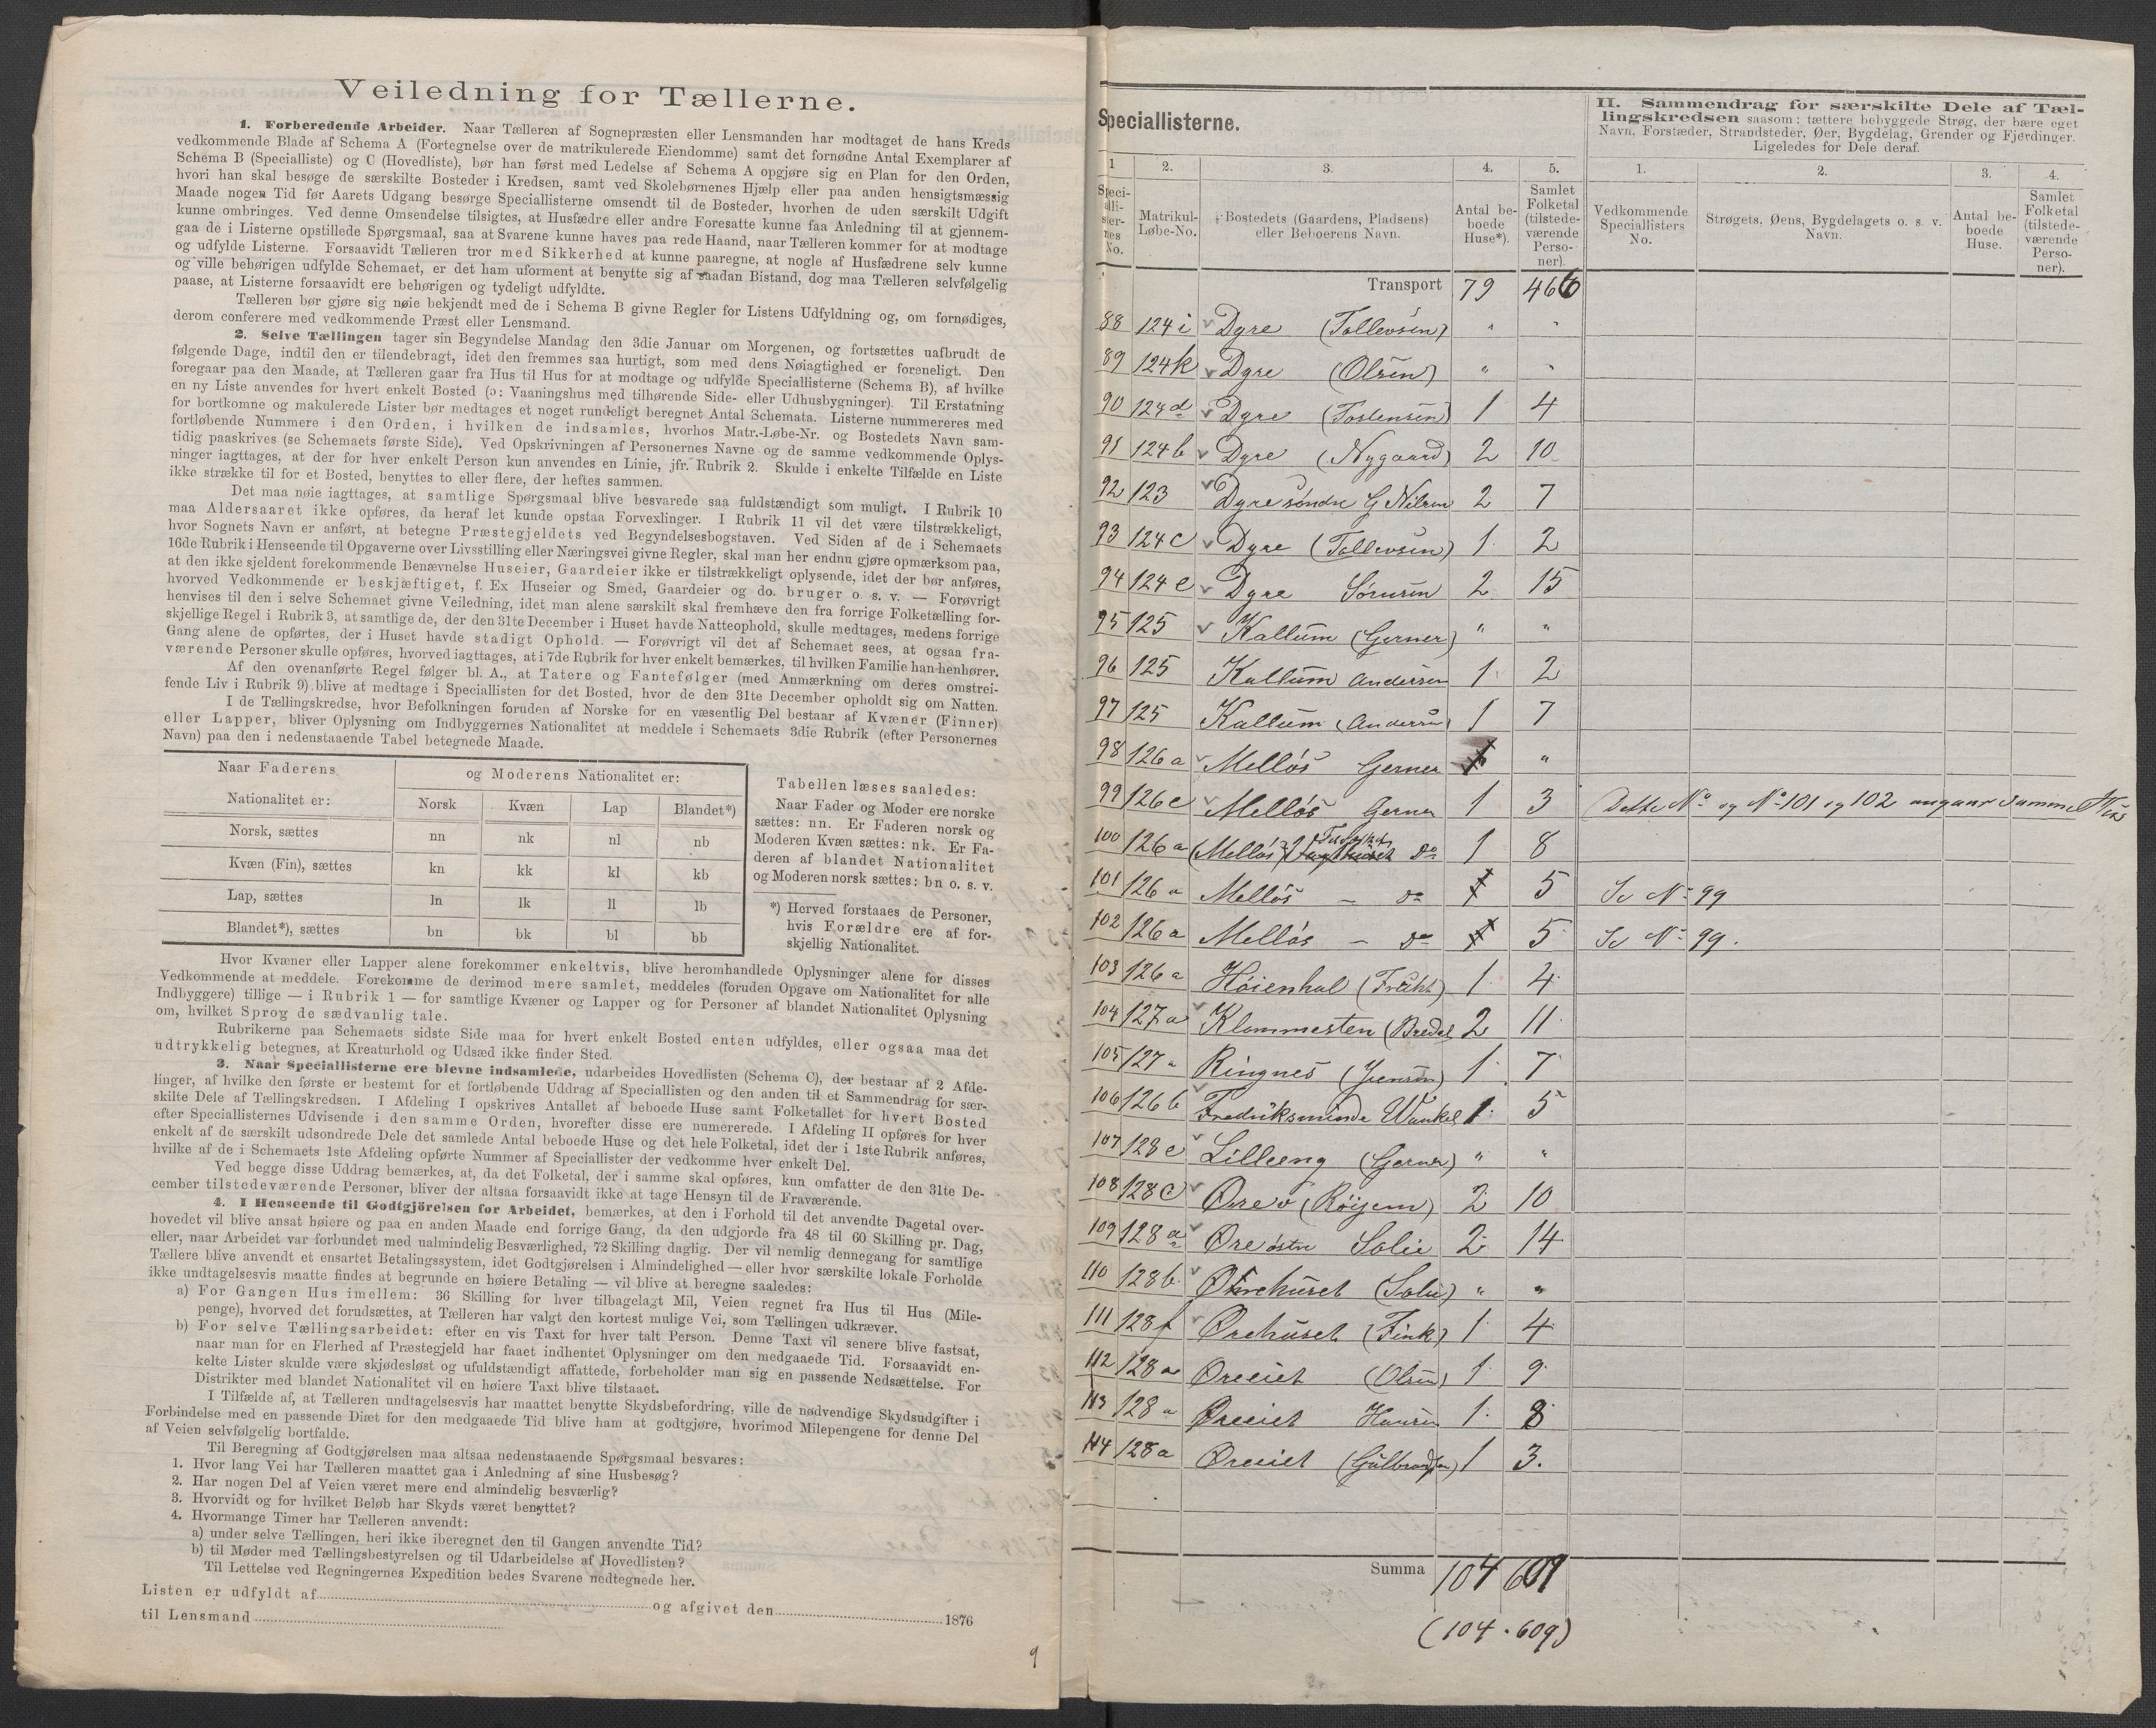 Veiledning for Tællerne.
1. Forberedende Arbeider. Naar Tælleren af Sognepræsten eller Lensmanden har modtaget de hans Kreds
vedkommende Blade af Schema A (Fortegnelse over de matrikulerede Eiendomme) samt det fornødne Antal Exemplarer af
Schema B (Specialliste) og C (Hovedliste), bør han først med Ledelse af Schema A opgjøre sig en Plan for den Orden,
hvori han skal besøge de særskilte Bosteder i Kredsen, samt ved Skolebørnenes Hjælp eller paa anden hensigtsmæssig
Maade nogen Tid før Aarets Udgang besørge Speciallisterne omsendt til de Bosteder, hvorhen de uden særskilt Udgift
kunne ombringes. Ved denne Omsendelse tilsigtes, at Husfædre eller andre Foresatte kunne faa Anledning til at gjennem-
gaa de i Listerne opstillede Spørgsmaal, saa at Svarene kunne haves paa rede Haand, naar Tælleren kommer for at modtage
og udfylde Listerne. Forsaavidt Tælleren tror med Sikkerhed at kunne paaregne, at nogle af Husfædrene selv kunne
og ville behørigen udfylde Schemaet, er det ham uforment at benytte sig af saadan Bistand, dog maa Tælleren selvfølgelig
paase, at Listerne forsaavidt ere behørigen og tydeligt udfyldte.
Tælleren bør gjøre sig nøie bekjendt med de i Schema B givne Regler for Listens Udfyldning og, om fornødiges,
derom conferere med vedkommende Præst eller Lensmand.
2. Selve Tællingen tager sin Begyndelse Mandag den 3die Januar om Morgenen, og fortsættes uafbrudt de
følgende Dage, indtil den er tilendebragt, idet den fremmes saa hurtigt, som med dens Nøiagtighed er foreneligt. Den
foregaar paa den Maade, at Tælleren gaar fra Hus til Hus for at modtage og udfylde Speciallisterne (Schema B), af hvilke
en ny Liste anvendes for hvert enkelt Bosted (ɔ: Vaaningshus med tilhørende Side- eller Udhusbygninger). Til Erstatning
for bortkomne og makulerede Lister bør medtages et noget rundeligt beregnet Antal Schemata. Listerne nummereres med
fortløbende Nummere i den Orden, i hvilken de indsamles, hvorhos Matr.-Løbe-Nr. og Bostedets Navn sam-
tidig paaskrives (se Schemaets første Side). Ved Opskrivningen af Personernes Navne og de samme vedkommende Oplys-
ninger iagttages, at der for hver enkelt Person kun anvendes en Linie, jfr. Rubrik 2. Skulde i enkelte Tilfælde en Liste
ikke strække til for et Bosted, benyttes to eller flere, der heftes sammen.
Det maa nøie iagttages, at samtlige Spørgsmaal blive besvarede saa fuldstændigt som muligt. I Rubrik 10
maa Aldersaaret ikke opføres, da heraf let kunde opstaa Forvexlinger. I Rubrik 11 vil det være tilstrækkeligt,
hvor Sognets Navn er anført, at betegne Præstegjeldets ved Begyndelsesbogstaven. Ved Siden af de i Schemaets
16de Rubrik i Henseende til Opgaverne over Livsstilling eller Næringsvei givne Regler, skal man her endnu gjøre opmærksom paa,
at den ikke sjeldent forekommende Benævnelse Huseier, Gaardeier ikke er tilstrækkeligt oplysende, idet der bør anføres,
hvorved Vedkommende er beskjæftiget, f. Ex Huseier og Smed, Gaardeier og do. bruger o. s. v. — Forøvrigt
henvises til den i selve Schemaet givne Veiledning, idet man alene særskilt skal fremhæve den fra forrige Folketælling for-
skjellige Regel i Rubrik 3, at samtlige de, der den 31te December i Huset havde Natteophold, skulle medtages, medens forrige
Gang alene de opførtes, der i Huset havde stadigt Ophold. — Forøvrigt vil det af Schemaet sees, at ogsaa fra-
værende Personer skulle opføres, hvorved iagttages, at i 7de Rubrik for hver enkelt bemærkes, til hvilken Familie han henhører.
Af den ovenanførte Regel følger bl. A., at Tatere og Fantefølger (med Anmærkning om deres omstrei-
fende Liv i Rubrik 9) blive at medtage i Speciallisten for det Bosted, hvor de den 31te December opholdt sig om Natten.
I de Tællingskredse, hvor Befolkningen foruden af Norske for en væsentlig Del bestaar af Kvæner (Finner)
eller Lapper, bliver Oplysning om Indbyggernes Nationalitet at meddele i Schemaets 3die Rubrik (efter Personernes
Navn) paa den i nedenstaaende Tabel betegnede Maade.
Naar Faderens og Moderens Nationalitet er:
Nationalitet er: Norsk Kvæn Lap Blandet*)
Norsk, sættes nn nk nl nb
Kvæn (Fin), sættes kn kk kl kb
Lap, sættes ln lk ll lb
Blandet*), sættes bn bk bl bb
Tabellen læses saaledes:
Naar Fader og Moder ere norske
sættes: nn. Er Faderen norsk og
Moderen Kvæn sættes: nk. Er Fa-
deren af blandet Nationalitet
og Moderen norsk sættes: bn o. s. v.
*) Herved forstaaes de Personer,
hvis Forældre ere af for-
skjellig Nationalitet.
Hvor Kvæner eller Lapper alene forekommer enkeltvis, blive heromhandlede Oplysninger alene for disses
Vedkommende at meddele. Forekomme de derimod mere samlet, meddeles (foruden Opgave om Nationalitet for alle
Indbyggere) tillige — i Rubrik 1 — for samtlige Kvæner og Lapper og for Personer af blandet Nationalitet Oplysning
om, hvilket Sprog de sædvanlig tale.
Rubrikerne paa Schemaets sidste Side maa for hvert enkelt Bosted enten udfyldes, eller ogsaa maa det
udtrykkelig betegnes, at Kreaturhold og Udsæd ikke finder Sted.
3. Naar Speciallisterne ere blevne indsamlede, udarbeides Hovedlisten (Schema C), der bestaar af 2 Afde-
linger, af hvilke den første er bestemt for et fortløbende Uddrag af Speciallisten og den anden til et Sammendrag for sær-
skilte Dele af Tællingskredsen. I Afdeling I opskrives Antallet af beboede Huse samt Folketallet for hvert Bosted
efter Speciallisternes Udvisende i den samme Orden, hvorefter disse ere numererede. I Afdeling II opføres for hver
enkelt af de særskilt udsondrede Dele det samlede Antal beboede Huse og det hele Folketal, idet der i 1ste Rubrik anføres,
hvilke af de i Schemaets 1ste Afdeling opførte Nummer af Speciallister der vedkomme hver enkelt Del.
Ved begge disse Uddrag bemærkes, at, da det Folketal, der i samme skal opføres, kun omfatter de den 31te De-
cember tilstedeværende Personer, bliver der altsaa forsaavidt ikke at tage Hensyn til de Fraværende.
4. I Henseende til Godtgjörelsen for Arbeidet, bemærkes, at den i Forhold til det anvendte Dagetal over-
hovedet vil blive ansat høiere og paa en anden Maade end forrige Gang, da den udgjorde fra 48 til 60 Skilling pr. Dag,
eller, naar Arbeidet var forbundet med ualmindelig Besværlighed, 72 Skilling daglig. Der vil nemlig dennegang for samtlige
Tællere blive anvendt et ensartet Betalingssystem, idet Godtgjørelsen i Almindelighed — eller hvor særskilte lokale Forholde
ikke undtagelsesvis maatte findes at begrunde en høiere Betaling — vil blive at beregne saaledes:
a) For Gangen Hus imellem: 36 Skilling for hver tilbagelagt Mil, Veien regnet fra Hus til Hus (Mile-
penge), hvorved det forudsættes, at Tælleren har valgt den kortest mulige Vei, som Tællingen udkræver.
b) For selve Tællingsarbeidet: efter en vis Taxt for hver talt Person. Denne Taxt vil senere blive fastsat,
naar man for en Flerhed af Præstegjeld har faaet indhentet Oplysninger om den medgaaede Tid. Forsaavidt en-
kelte Lister skulde være skjødesløst og ufuldstændigt affattede, forbeholder man sig en passende Nedsættelse. For
Distrikter med blandet Nationalitet vil en høiere Taxt blive tilstaaet.
I Tilfælde af, at Tælleren undtagelsesvis har maattet benytte Skydsbefordring, ville de nødvendige Skydsudgifter i
Forbindelse med en passende Diæt for den medgaaede Tid blive ham at godtgjøre, hvorimod Milepengene for denne Del
af Veien selvfølgelig bortfalde.
Til Beregning af Godtgjørelsen maa altsaa nedenstaaende Spørgsmaal besvares:
1. Hvor lang Vei har Tælleren maattet gaa i Anledning af sine Husbesøg?
2. Har nogen Del af Veien været mere end almindelig besværlig?
3. Hvorvidt og for hvilket Beløb har Skyds været benyttet?
4. Hvormange Timer har Tælleren anvendt:
a) under selve Tællingen, heri ikke iberegnet den til Gangen anvendte Tid?
b) til Møder med Tællingsbestyrelsen og til Udarbeidelse af Hovedlisten?
Til Lettelse ved Regningernes Expedition bedes Svarene nedtegnede her.
Listen er udfyldt af og afgivet den
til Lensmand 1876
9
Speciallisterne.
II. Sammendrag for særskilte Dele af Tæl-
lingskredsen saasom: tættere bebyggede Strøg, der bære eget
Navn, Forstæder, Strandsteder, Øer, Bygdelag, Grender og Fjerdinger.
Ligeledes for Dele deraf.
1 2. 3. 4. 5. 1. 2. 3. 4.
Speci-
alli-
ster-
nes
No.
Matrikul-
Løbe-No.
Bostedets (Gaardens, Pladsens)
eller Beboerens Navn.
Antal be-
boede
Huse*).
Samlet
Folketal
(tilstede-
værende
Perso-
ner).
Vedkommende
Speciallisters
No.
Strøgets, Øens, Bygdelagets o. s. v.
Navn.
Antal be-
boede
Huse.
Samlet
Folketal
(tilstede-
værende
Perso-
ner).
Transport 79 466
88 124i Dyre (Tollevsen) " "
89 124k Dyre (Olsen) " "
90 124d Dyre (Tostensen) 1 4
91 124b Dyre (Nygaard) 2 10
92 123 Dyre søndre G Nilsen 2 7
93 124c Dyre (Tollevsen) 1 2
94 124e Dyre Sørensen 2 15
95 125 Kallum (Gerner) " "
96 125 Kallum Andersen 1 2
97 125 Kallum (Andersen) 1 7
98 126a Melløs Gerner "
99 126e Melløs Gerner 1 3 Dette No og No 101 og 102 angaar samme Hus
100 126a (Melløs) do 1 8
101 126a Melløs – do 1 5 Se No 99
102 126a Melløs – do 1 5 Se No 99.
103 126a Høienhal 1 4
104 127a Klommesten (Bredal 2 11
105 127a Ringnes (Jensen) 1 7
106 126b Fredriksminde Wankel 1 5
107 128e Lilleeng (Gerner) " "
108 128c Øre v (Röijem) 2 10
109 128a Øre østre Solie 2 14
110 128b Ørehuset (Solie) " "
111 128f Ørehuset (Fink) 1 4
112 128a Øreeiet (Olsen) 1 9
113 128a Øreeiet Hansen 1 8
114 128a Øreeiet (Gulbrandsen) 1 3.
Summa 104 609
(104 . 609)